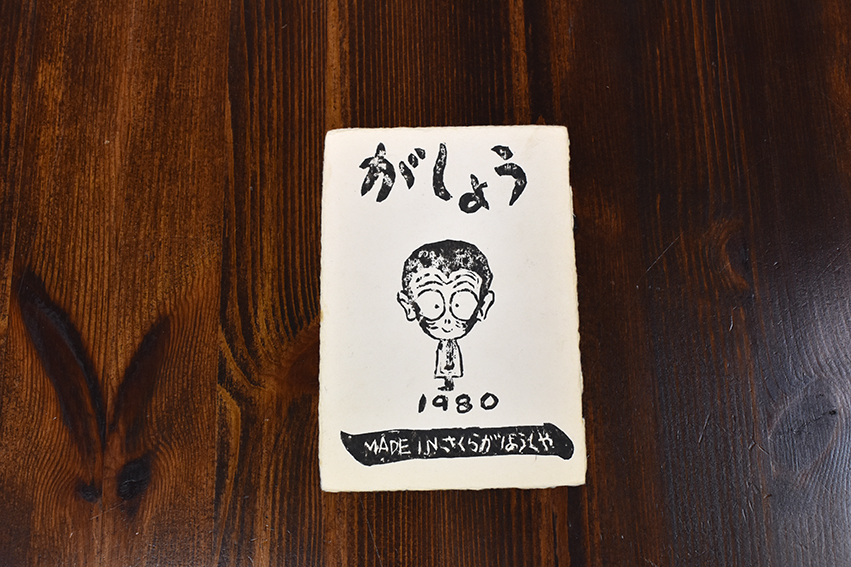 がしょう
1980
MADE IN さくらがほうしや